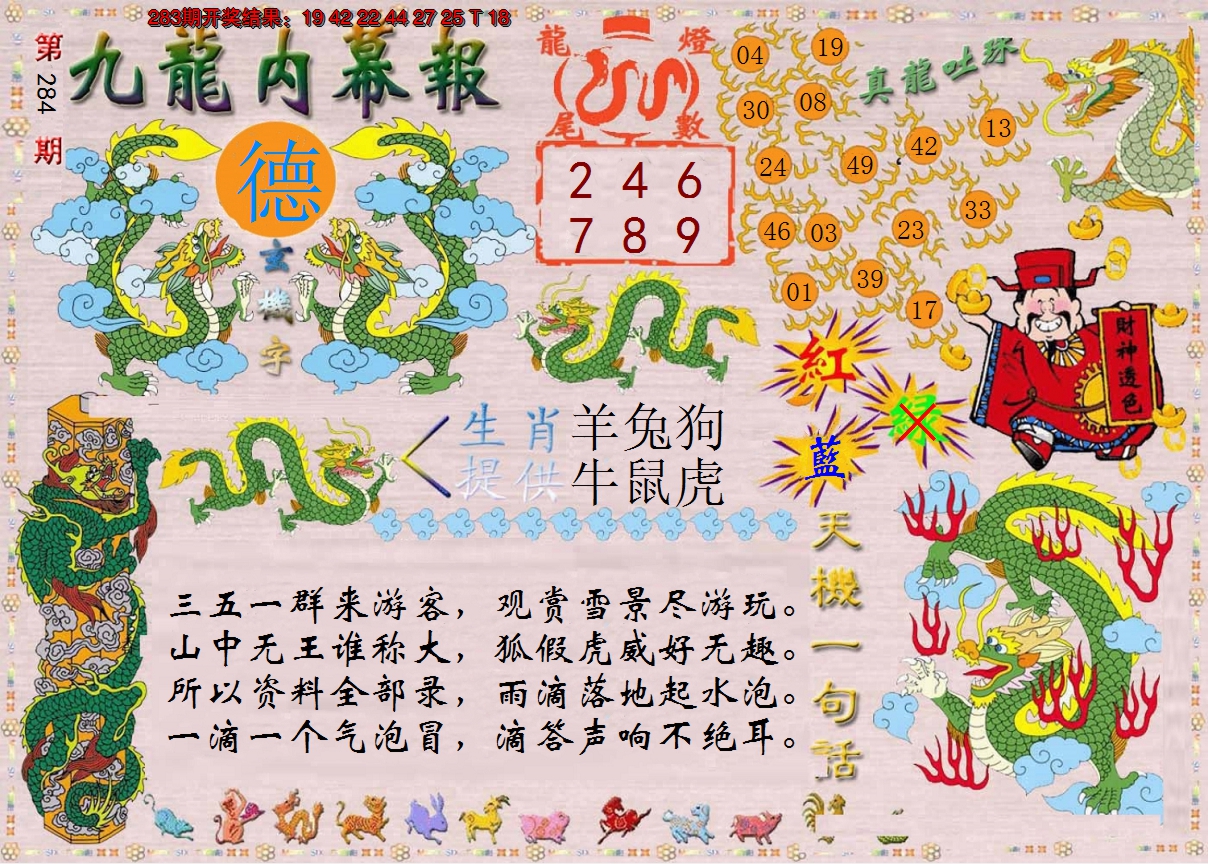 283期开奖结果：19 42 22 44 27 25 T 18
第284期
九龍内幕報
德
玄機字
龍燈
尾數
2 4 6
7 8 9
真龍吐珠
04
19
30
08
13
42
24
49
33
46
03
23
39
01
17
財神透色
紅
绿
藍
生肖 羊兔狗
提供 牛鼠虎
天機一句話
三五一群来游客，观赏雪景尽游玩。
山中无王谁称大，狐假虎威好无趣。
所以资料全部录，雨滴落地起水泡。
一滴一个气泡冒，滴答声响不绝耳。